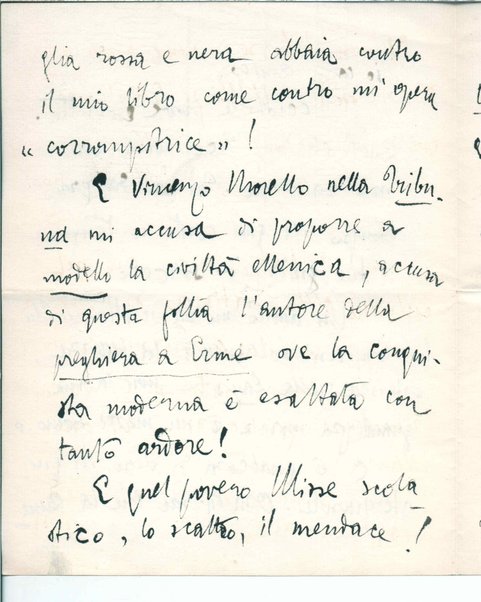 glia rossa e nera abbaia contro
il mio libro come contro un'opera
« corrompitrice » !
E Vincenzo Morello nella Tribu-
na mi accusa di proporre a
modello la civiltà ellenica, accusa
di questa follia l'autore della
preghiera a Erme ove la conqui-
sta moderna è esaltata con
tanto ardore!
E quel povero Ulisse scola-
stico, lo scaltro, il mendace!